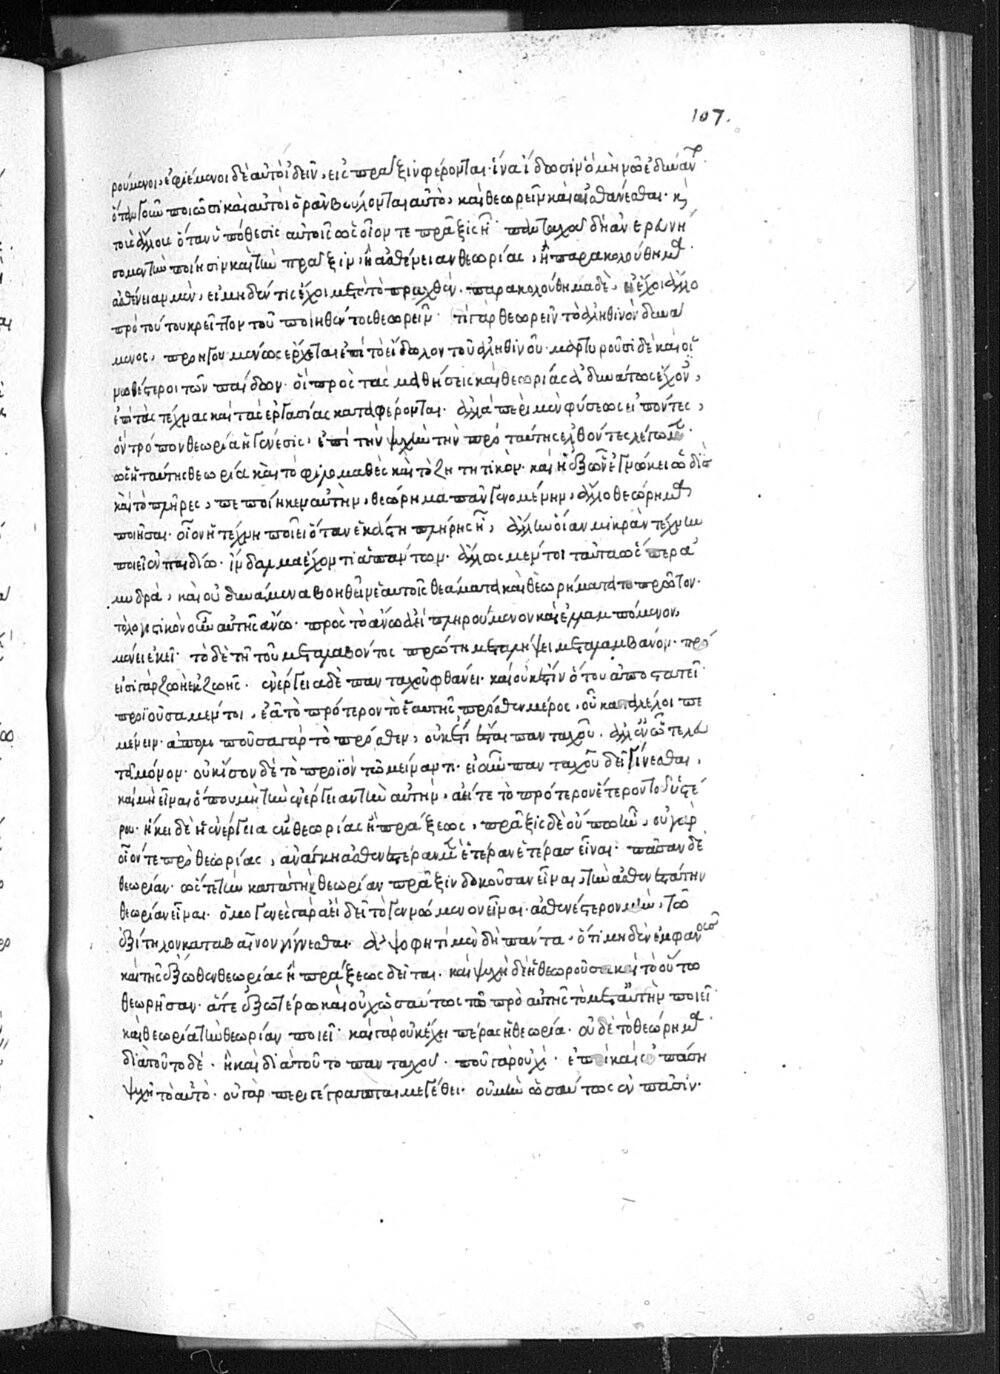 ρούμενοι, ἐφιέμενοι δὲ αὐτὸ ἰδεῖν, εἰς πρᾶξιν φέρονται· ἵνα ἴδωσιν ὃ μὴ νῶ ἐδύναντ
ὅταν γοῦν ποιῶσι καὶ αὐτοὶ ὁρᾶν βούλονται αὐτὸ, καὶ θεωρεῖν καὶ αἰσθάνεσθαι· κ
τοὺς ἄλλους ὅταν ὑπόθεσις αὐτοῖς ὡς οἷον τε πρᾶξις ᾖ· πανταχοῦ δὴ ἀνευρή
σομεν τὴν ποίησιν καὶ τὴν πρᾶξιν, ἢ ἀσθένειαν θεωρίας, ἢ παρακολούθημα·
ἀσθένειαν μὲν, εἰ μηδέν τις ἔχοι μετὰ τὸ πραχθέν· παρακολούθημα δὲ, εἰ ἔχοι ἄλλο
πρὸ τούτου κρεῖττον τοῦ ποιηθέντος θεωρεῖν· τί γὰρ θεωρεῖν τὸ ἀληθινὸν δυνά
μενος, προηγουμένως ἔρχεται ἐπὶ τὸ εἴδωλον τοῦ ἀληθινοῦ· μαρτυροῦσι δὲ καὶ οἱ
νωθέστεροι τῶν παίδων· οἳ πρὸς τὰς μαθήσεις καὶ θεωρίας ἀδυνάτως ἔχοντες,
ἐπὶ τὰς τέχνας καὶ τὰς ἐργασίας καταφέρονται· ἀλλὰ περὶ μὲν φύσεως εἰπόντες,
ὃν τρόπον θεωρία ἡ γένεσις, ἐπὶ τὴν ψυχὴν τὴν πρὸ ταύτης ἐλθόντες λέγωμεν·
ὡς ἡ ταύτης θεωρία καὶ τὸ φιλομαθὲς καὶ τὸ ζητητικὸν· καὶ ἡ ἐξ ὧν ἐγνώκει ὠδὶς
καὶ τὸ πλῆρες, πεποίηκεν αὐτὴν, θεώρημα πᾶν γενομένην, ἄλλο θεώρημα
ποιῆσαι· οἷον ἡ τέχνη ποιεῖ ὅταν ἑκάστη πλήρης ᾖ, ἄλλην οἷαν μικρὰν τέχνην
ποιεῖ ἐν παιδίω· ἴνδαλμα ἔχοντι ἁπάντων· ἄλλως μέντοι ταῦτα ὥσπερ ἀ
μυδρὰ, καὶ οὐ δυνάμενα βοηθεῖν ἑαυτοῖς θεάματα καὶ θεωρήματα τὸ πρῶτον·
τὸ λογιστικὸν οὖν αὐτῆς ἄνω· πρὸς τὸ ἄνω ἀεὶ πληρούμενον καὶ ἐλλαμπόμενον,
μένει ἐκεῖ· τὸ δὲ τῇ τοῦ μεταλαβόντος πρώτη μεταλήψει μεταλαμβάνον· πρό
εισι γὰρ ζωὴ ἐκ ζωῆς· ἐνέργεια δὲ πανταχοῦ φθάνει· καὶ οὐκ ἔστιν ὅτου ἀποστατεῖ·
προϊοῦσα μέντοι, ἐᾷ τὸ πρότερον τὸ ἑαυτῆς πρόσθεν μέρος, οὗ καταλέλοιπε
μένειν· ἀπολιποῦσα γὰρ τὸ πρόσθεν, οὐκέτι ἔσται πανταχοῦ, ἀλλ' ἐν ᾧ τελευ
τᾷ μόνον· οὐκ ἴσον δὲ τὸ προϊὸν τῶ μείναντι· εἰ οὖν πανταχοῦ δεῖ γίνεσθαι,
καὶ μὴ εἶναι ὅπου μὴ τὴν ἐνέργειαν τὴν αὐτὴν, ἀεί τε τὸ πρότερον ἕτερον τοῦ ὑστέ
ρου· ἥκει δὲ ἡ ἐνέργεια ἐκ θεωρίας ἢ πράξεως, πρᾶξις δὲ οὔπω ἦν, οὐ γὰρ
οἷόν τε πρὸ θεωρίας, ἀνάγκη ἀσθενεστέραν μὲν ἑτέραν ἑτέρας εἶναι· πᾶσαν δὲ
θεωρίαν· ὥστε τὴν κατὰ τὴν θεωρίαν πρᾶξιν δοκοῦσαν εἶναι, τὴν ἀσθενεστάτην
θεωρίαν εἶναι· ὁμογενὲς γὰρ ἀεὶ δεῖ τὸ γεννώμενον εἶναι· ἀσθενέστερον μὴν, τῶ
ἐξίτηλον καταβαῖνον γίγνεσθαι· ἀψοφητὶ μὲν δὴ πάντα· ὅτι μηδὲν ἐμφανοῦς
καὶ τῆς ἔξωθεν θεωρίας ἢ πράξεως δεῖται· καὶ ψυχὴ δὲ ἡ θεωροῦσα καὶ τὸ οὕτω
θεωρῆσαν· ἅτε ἐξωτέρω καὶ οὐχ ὡσαύτως τῶ πρὸ αὐτῆς τὸ μετ' αὐτὴν ποιεῖ·
καὶ θεωρία τὴν θεωρίαν ποιεῖ· καὶ γὰρ οὐκ ἔχει πέρας ἡ θεωρία· οὐδὲ τὸ θεώρημα·
διὰ τοῦτο δὲ· ἢ καὶ διὰ τοῦτο πανταχοῦ· ποῦ γὰρ οὐχί· ἐπεὶ καὶ ἐν πάση
ψυχῇ τὸ αὐτό· οὐ γὰρ περιγέγραπται μεγέθει· οὐ μὴν ὡσαύτως ἐν πᾶσιν·
107.